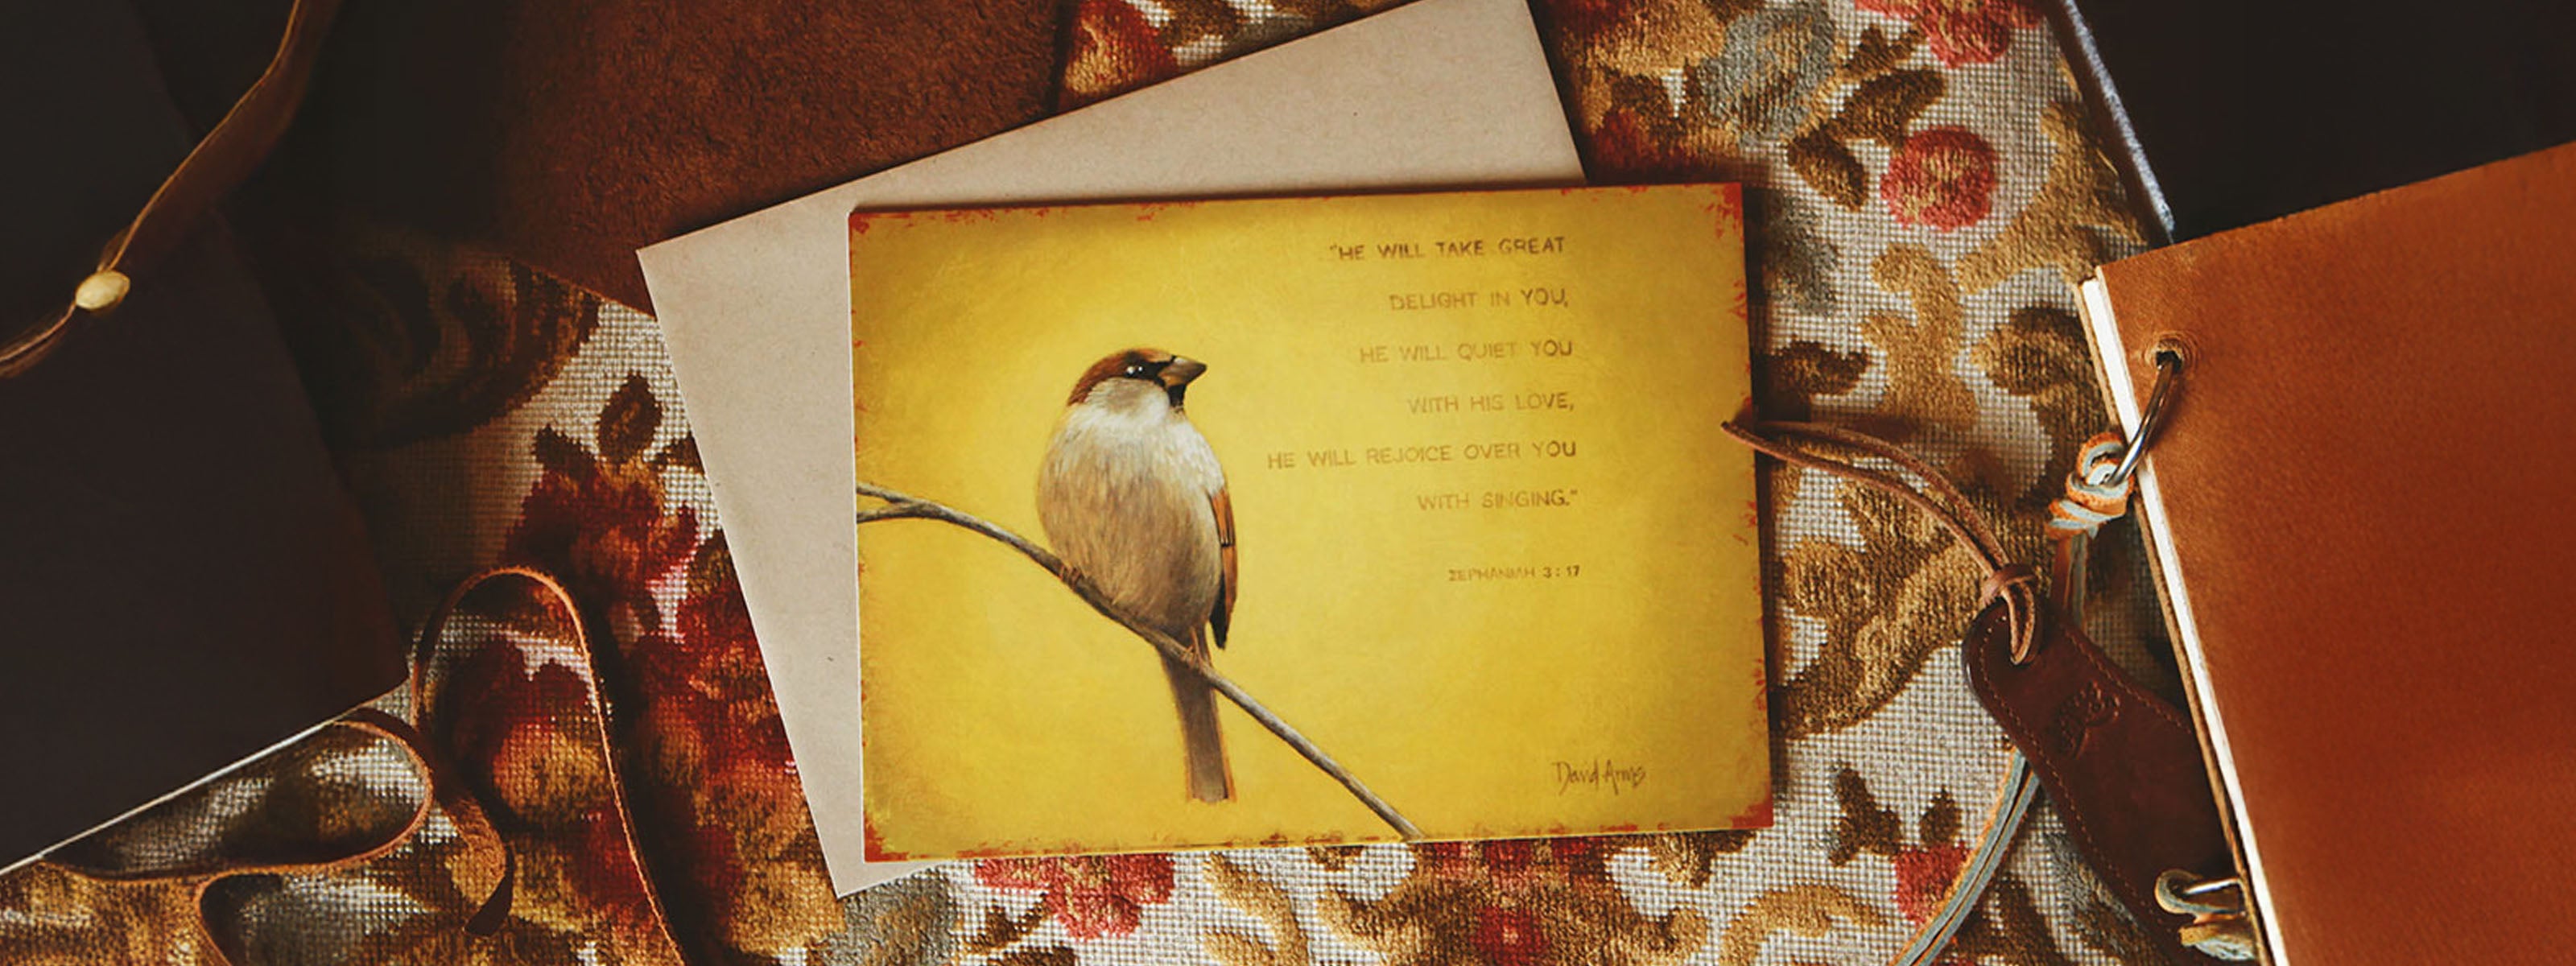 "HE WILL TAKE GREAT
DELIGHT IN YOU,
HE WILL QUIET YOU
WITH HIS LOVE,
HE WILL REJOICE OVER YOU
WITH SINGING."
ZEPHANIAH 3:17
David Arms